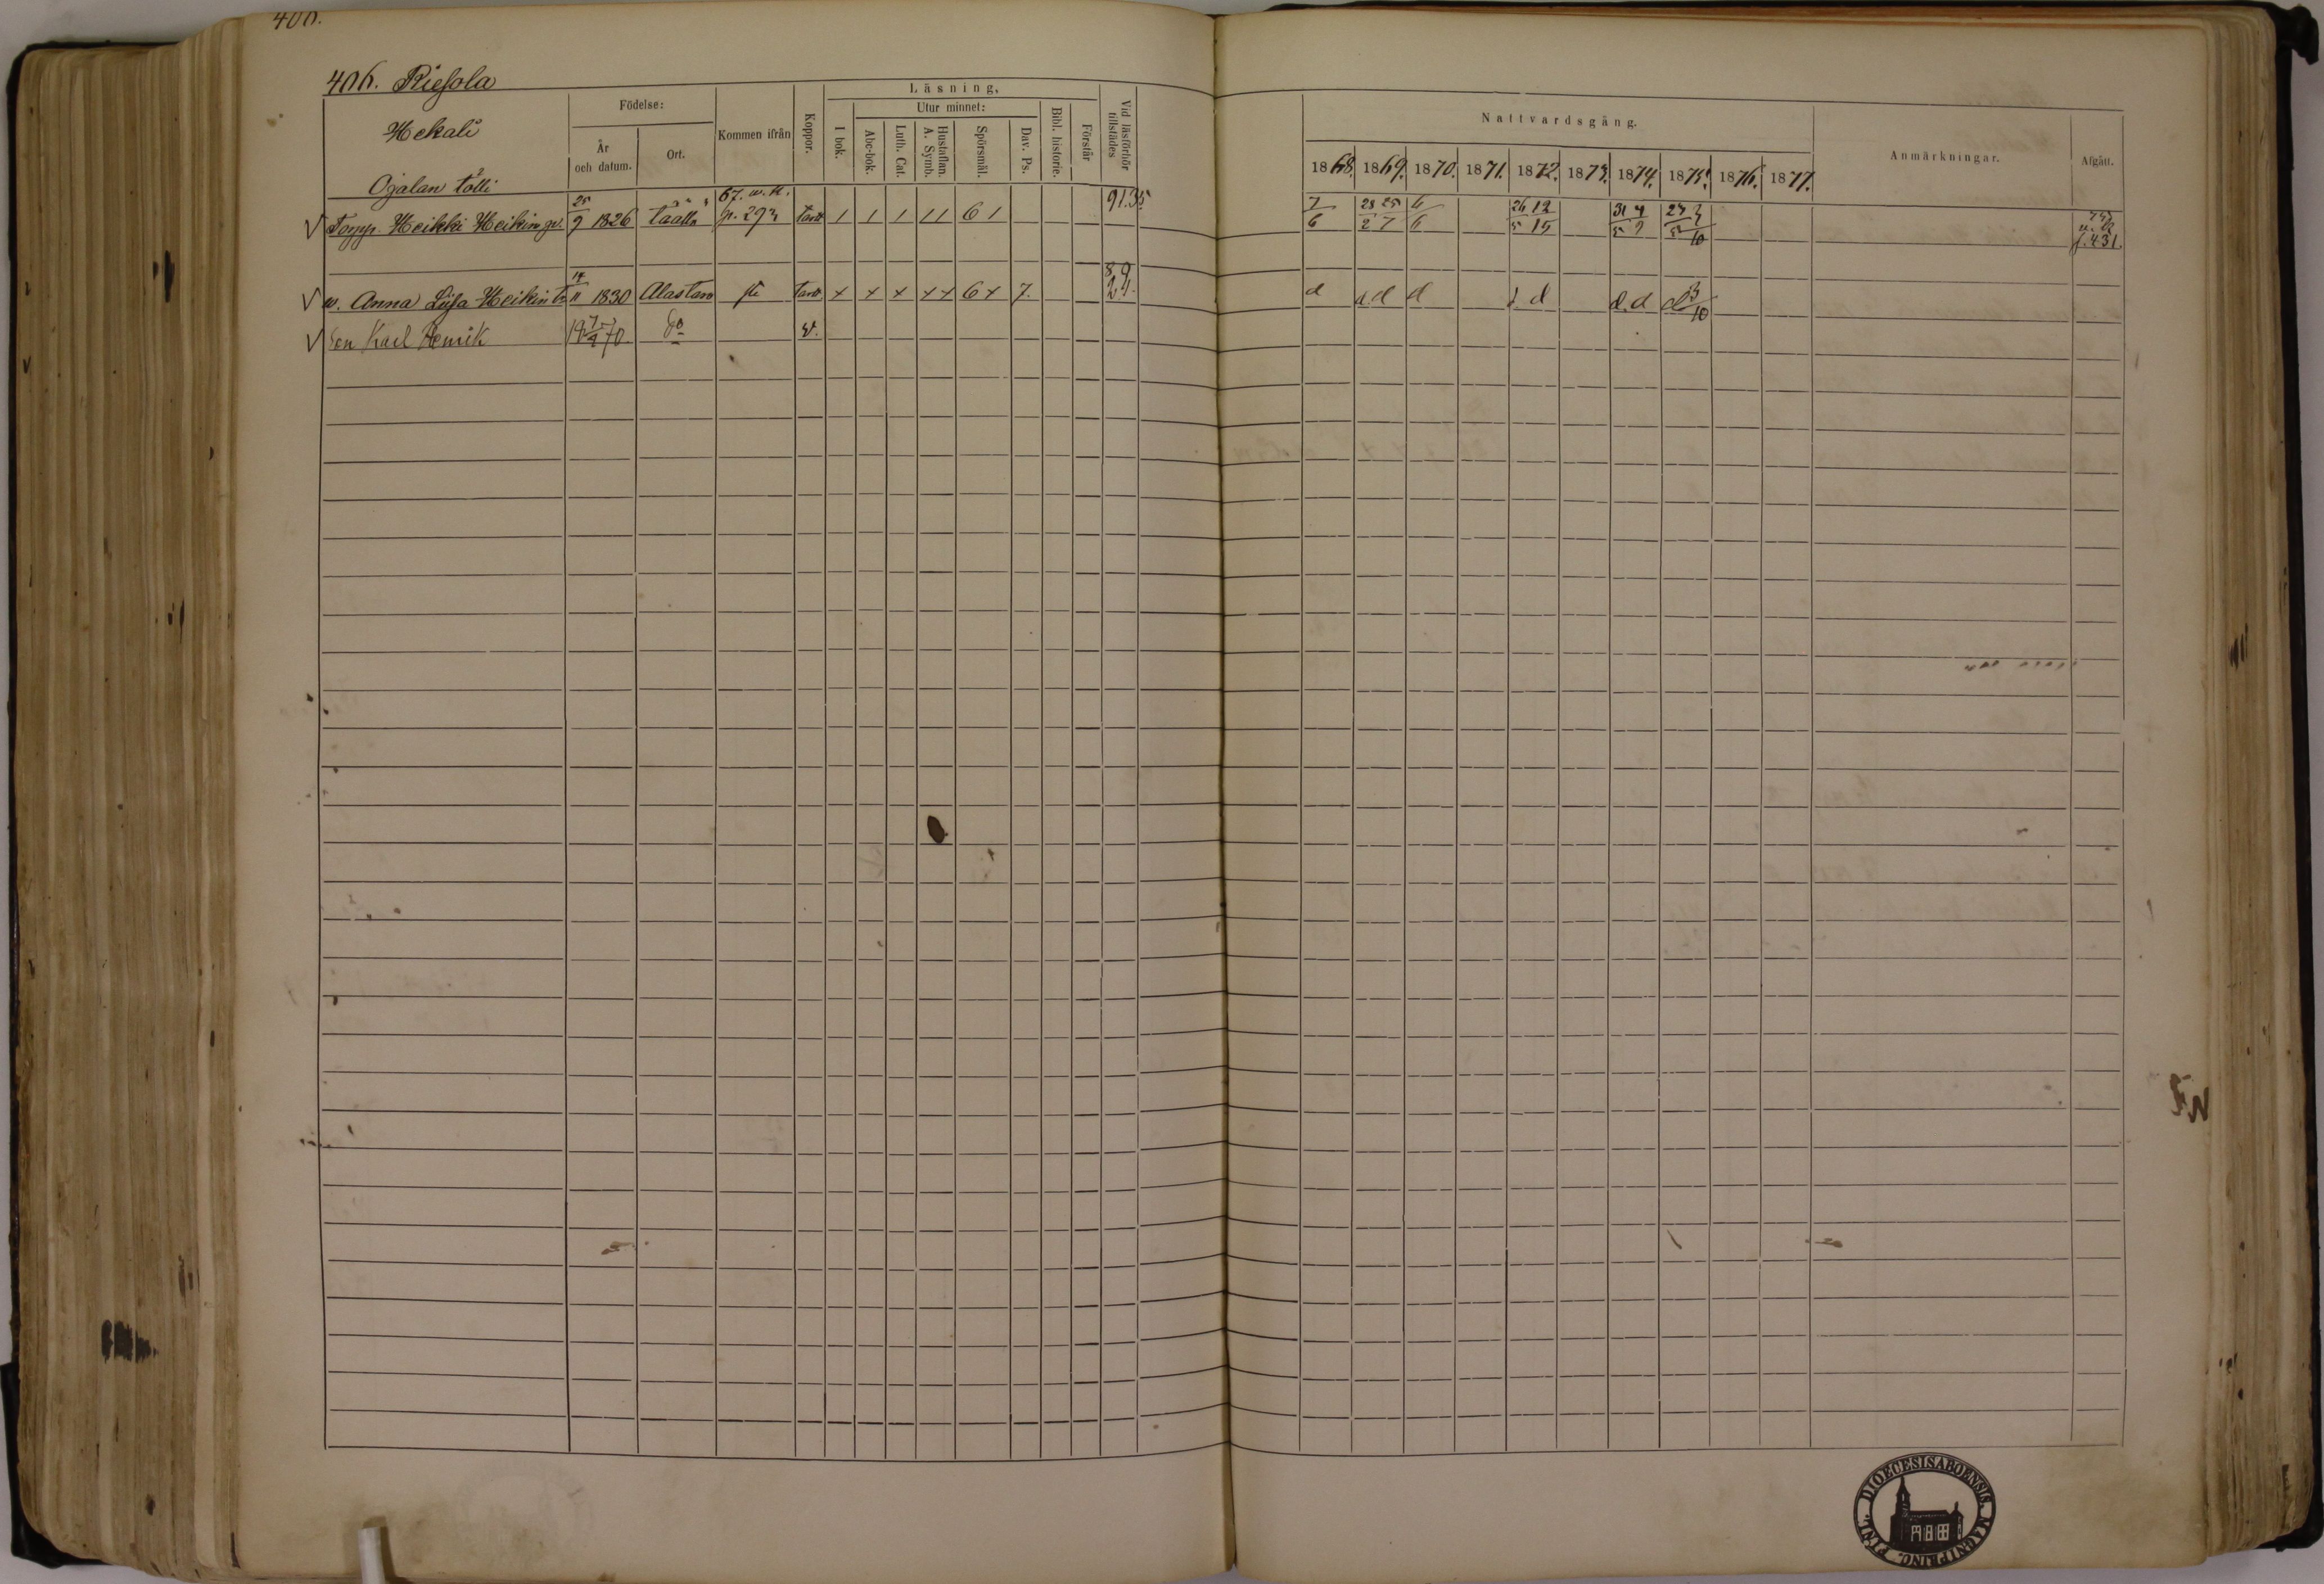 406.
406. Riesola
Hekali
Ojalan tölli
Födelse:
År och datum.
Ort.
Kommen ifrån
Koppor.
Läsning,
I bok.
Utur minnet:
Abc-bok.
Luth. Cat.
Hustaflan. A. Symb.
Spörsmål.
Dav. Ps.
Bibl. historie.
Förstår
Vid läsförhör tillstädes
Nattvardsgång.
1868. 1869. 1870. 1871. 1872. 1873. 1874. 1875. 1876. 1877.
Anmärkningar.
Afgått.
V Torpp. Heikki Heikinp. 25/9 1826 täällä 67. w. k. p. 293 1 1 1 11 6 1 91.35. 7/6 28 25 / 2 7 6/6 26 12 / 5 15 31 4 / 5 9
f. 431.
V w. Anna Liisa Heikin t. 14/11 1830 Alastaro + + + ++ 6+ 7. 89 24. d d.d d d d d.d d 3/10
V Son Karl Henrik 19 7/4 70. do v.
DIOECESIS ABOENSIS. MAGNI PRINC. FINL.